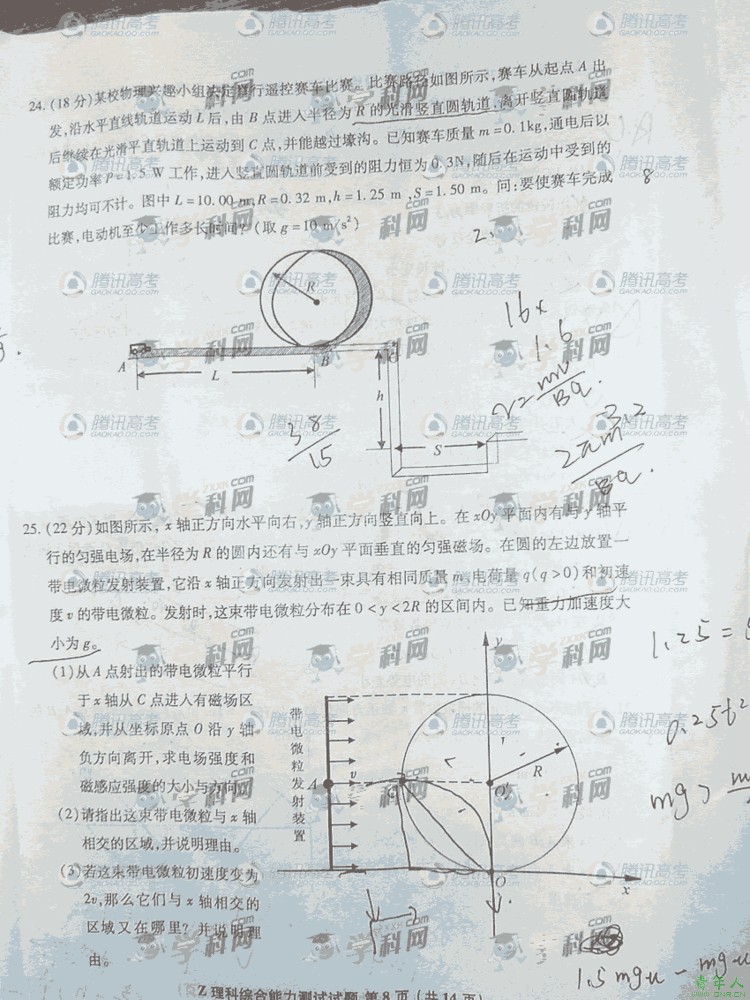 24.(18分)某校物理兴趣小组决定举行遥控赛车比赛。比赛路径如图所示,赛车从起点A出
发,沿水平直线轨道运动L后,由B点进入半径为R的光滑竖直圆轨道,离开竖直圆轨道
后继续在光滑平直轨道上运动到C点,并能越过壕沟。已知赛车质量m=0.1kg,通电后以
额定功率P=1.5 W工作,进入竖直圆轨道前受到的阻力恒为0.3N,随后在运动中受到的
阻力均可不计。图中L=10.00 m,R=0.32 m,h=1.25 m,S=1.50 m。问:要使赛车完成
比赛,电动机至少工作多长时间?(取g=10 m/s²)
8
2.
R
A
L
B
C
h
S
16x
1.6
38
15
25.(22分)如图所示,x轴正方向水平向右,y轴正方向竖直向上。在xOy平面内有与y轴平
行的匀强电场,在半径为R的圆内还有与xOy平面垂直的匀强磁场。在圆的左边放置一
带电微粒发射装置,它沿x轴正方向发射出一束具有相同质量m、电荷量q(q>0)和初速
度v的带电微粒。发射时,这束带电微粒分布在0<y<2R的区间内。已知重力加速度大
小为g。
(1)从A点射出的带电微粒平行
于x轴从C点进入有磁场区
域,并从坐标原点O沿y轴
负方向离开,求电场强度和
磁感应强度的大小与方向。
(2)请指出这束带电微粒与x轴
相交的区域,并说明理由。
(3)若这束带电微粒初速度变为
2v,那么它们与x轴相交的
区域又在哪里?并说明理
由。
带电微粒发射装置
A
v
C
y
R
O'
O
x
1.25=
mg>
1.5mgu-mgu
Z理科综合能力测试试题 第8页(共14页)
腾讯高考
GAOKAO.QQ.COM
学科网
ZXXK.COM
青年人